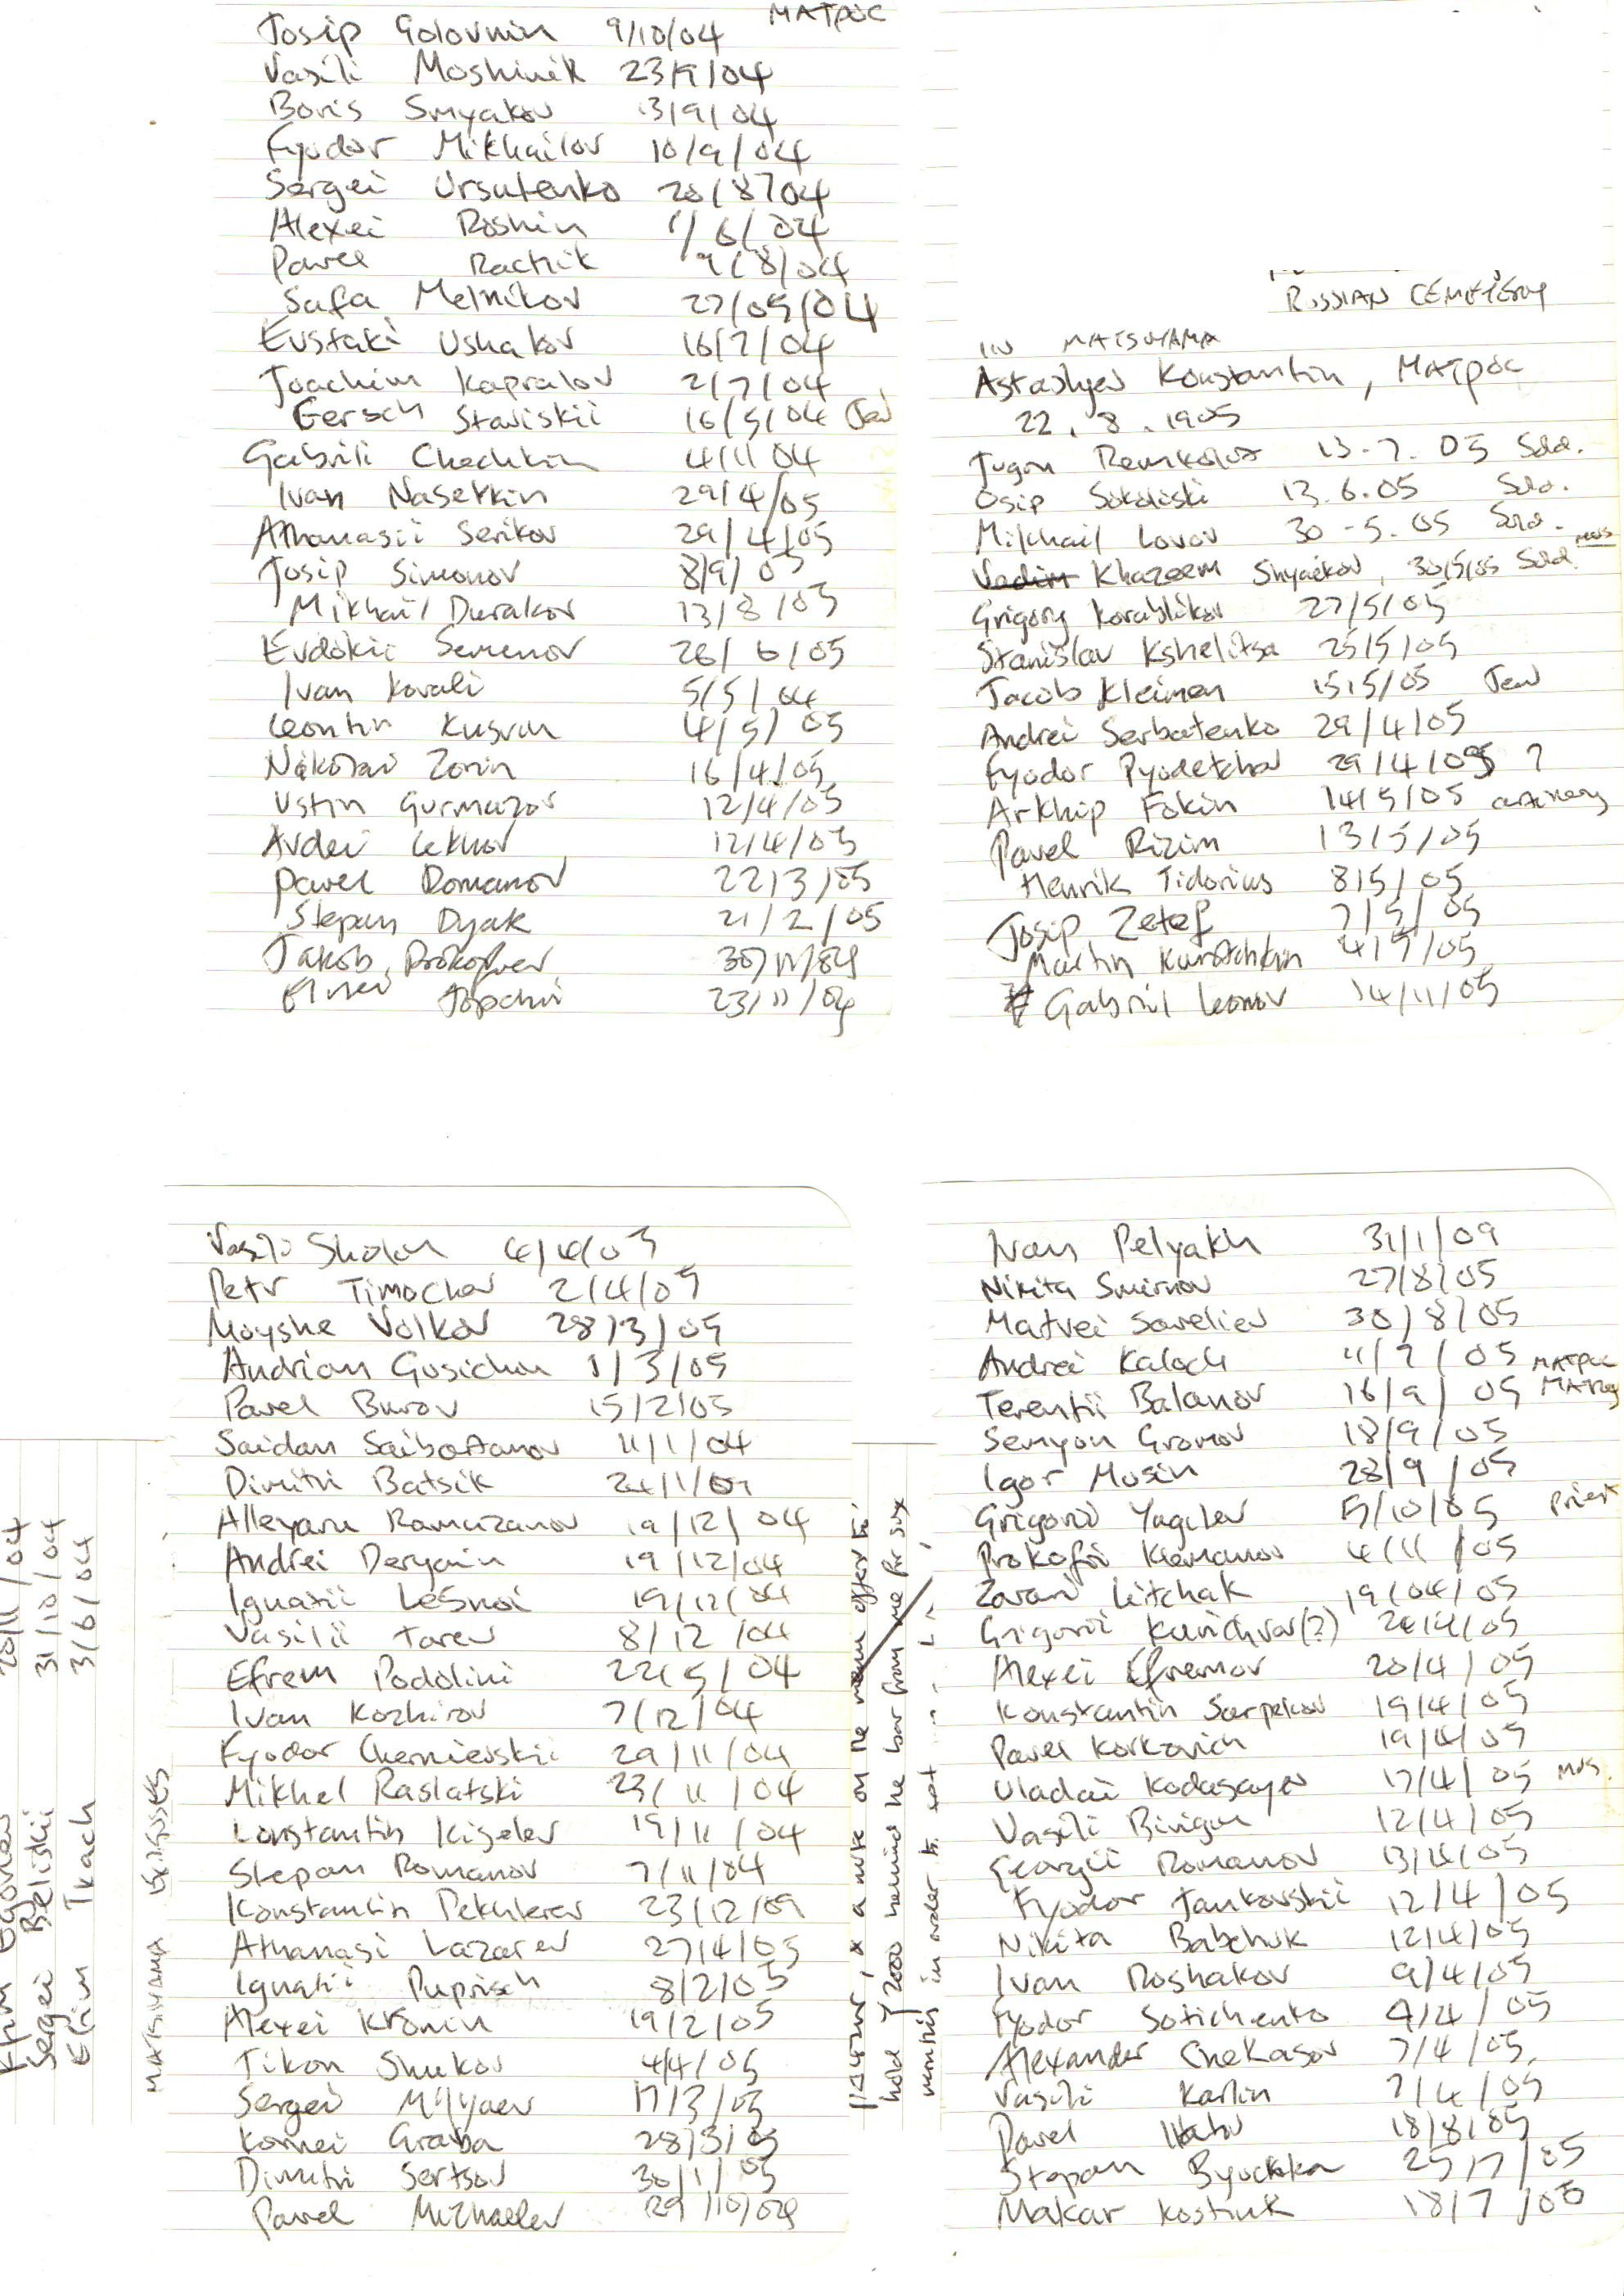 МАТРОС
Josip Golovnin 9/10/04
Vasili Moshinik 23/9/04
Boris Smyakov 13/9/04
Fyodor Mikhailov 10/9/04
Sergei Ursutenko 28/8/04
Alexei Roshin 1/6/04
Pavel Rachik 9/8/04
Safa Melnikov 27/05/04
Evstaki Ushakov 16/7/04
Joachim Kapralov 2/7/04
Gersch Staviskii 16/5/04 Jew
Gabrili Chechkin 4/11/04
Ivan Nasetkin 29/4/05
Athanasii Serikov 29/4/05
Josip Simonov 8/9/05
Mikhail Durakov 13/8/05
Evdokii Semenov 26/6/05
Ivan Kovali 5/5/04
Leontin 4/5/05
Nikolai Zorin 16/4/05
Ustin Gurmazov 12/4/05
Avdei Lekhov 12/4/05
Pavel Romanov 22/3/05
Stepan Dyak 21/2/05
Jakob Prokofiev 30/11/04
23/11/04
RUSSIAN CEMETERY
IN MATSUYAMA
Astashyev Konstantin, МАТРОС
22.8.1905
13-7.05 Sold.
Osip Sokoliski 13.6.05 Sold.
Mikhail Lovov 30-5.05 Sold.
Khazeem 30/5/05 Sold. mus
Grigory Korablikov 27/5/05
Stanislav Kshelitsa 25/5/05
Jacob Kleiman 15/5/05 Jew
Andrei Serbatenko 29/4/05
Fyodor Pyodetchov 29/4/05 ?
Arkhip Fokin 14/5/05 artillery
Pavel Rizim 13/5/05
Henrik Tidorius 8/5/05
Josip Zetef 7/5/05
Martin 4/5/05
Gabriil Leonov 14/11/05
Vasili Sholon 4/4/05
Petr Timochov 2/4/05
Moyshe Volkov 28/3/05
Andrian Gusichon 1/3/05
Pavel Burov 15/2/05
Saidan Saibottanov 11/1/04
Dimitri Batsik 24/1/05
Alleyaru Ramazanov 19/12/04
Andrei Deryain 19/12/04
Ignatii Lesnoi 19/12/04
Vasilii Tarev 8/12/04
Efrem Podolini 22/5/04
Ivan Kozhirov 7/12/04
Fyodor Chernievskii 29/11/04
Mikhel Raslatski 23/11/04
Constantin Kiselev 19/11/04
Stepan Romanov 7/11/04
Konstantin Pekhlerev 23/12/04
Athanasi Lazarev 27/4/05
Ignatii Puprisch 8/2/05
Alexei Kronin 19/2/05
Tikon Shukov 4/4/05
Sergei Milyaev 17/3/05
Kornei Graba 28/3/05
Dimitri Sertsov 30/1/05
Pavel Michaelev 29/10/04
Ivan Pelyakh 31/1/09
Nikita Smirnov 27/8/05
Matvei Saveliev 30/8/05
Andrei Kaloch 11/7/05 МАТРОС
Terentii Balanov 16/9/05 МАТРОС
Semyon Gromov 18/9/05
Igor Musin 28/9/05
Grigorii Yagilev 5/10/05 priest
Prokofii Klemanov 4/11/05
Zavari Litchak 19/04/05
Grigorii Kurichvar(?) 20/4/05
Alexei Efremov 20/4/05
Konstantin Sarpekov 19/4/05
Pavel Korkovich 19/4/05
Uladai Kodasayev 17/4/05 mus.
Vasili Birigun 12/4/05
Georgii Romanov 13/4/05
Fyodor Jankovskii 12/4/05
Nikita Babchuk 12/4/05
Ivan Roshakov 9/4/05
Fyodor Sotichenko 9/4/05
Alexander Chekasov 7/4/05
Vasili Karlin 7/4/05
Pavel 18/8/05
Stepan Byuchka 25/7/05
Makar Kostiuk 18/7/05
20/11/04
Sergei Beliskii 31/10/04
Efim Tkach 3/6/04
MATSUYAMA
a note on the menu offers to
hold Y2000 behind the bar from me for six
months in order to